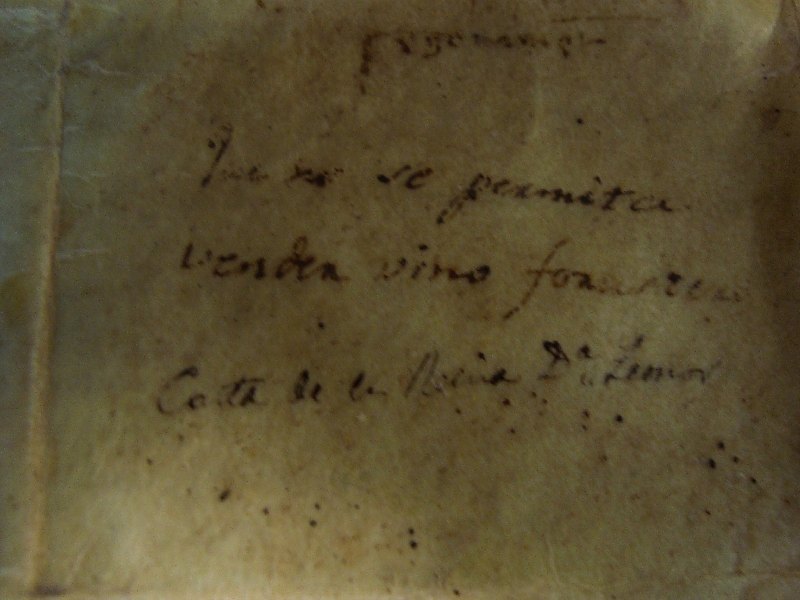 Que no se permita
vender vino forastero
Carta de la Reina Dª